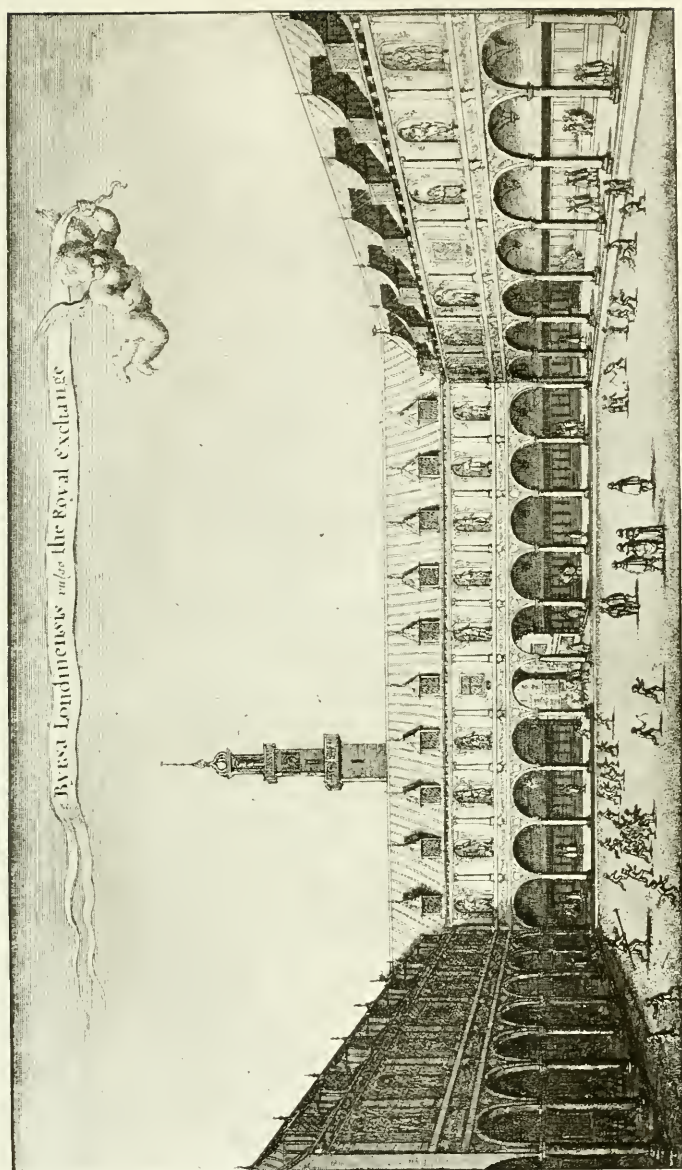 Byrsa Londinensis vulgo the Royal Exchange